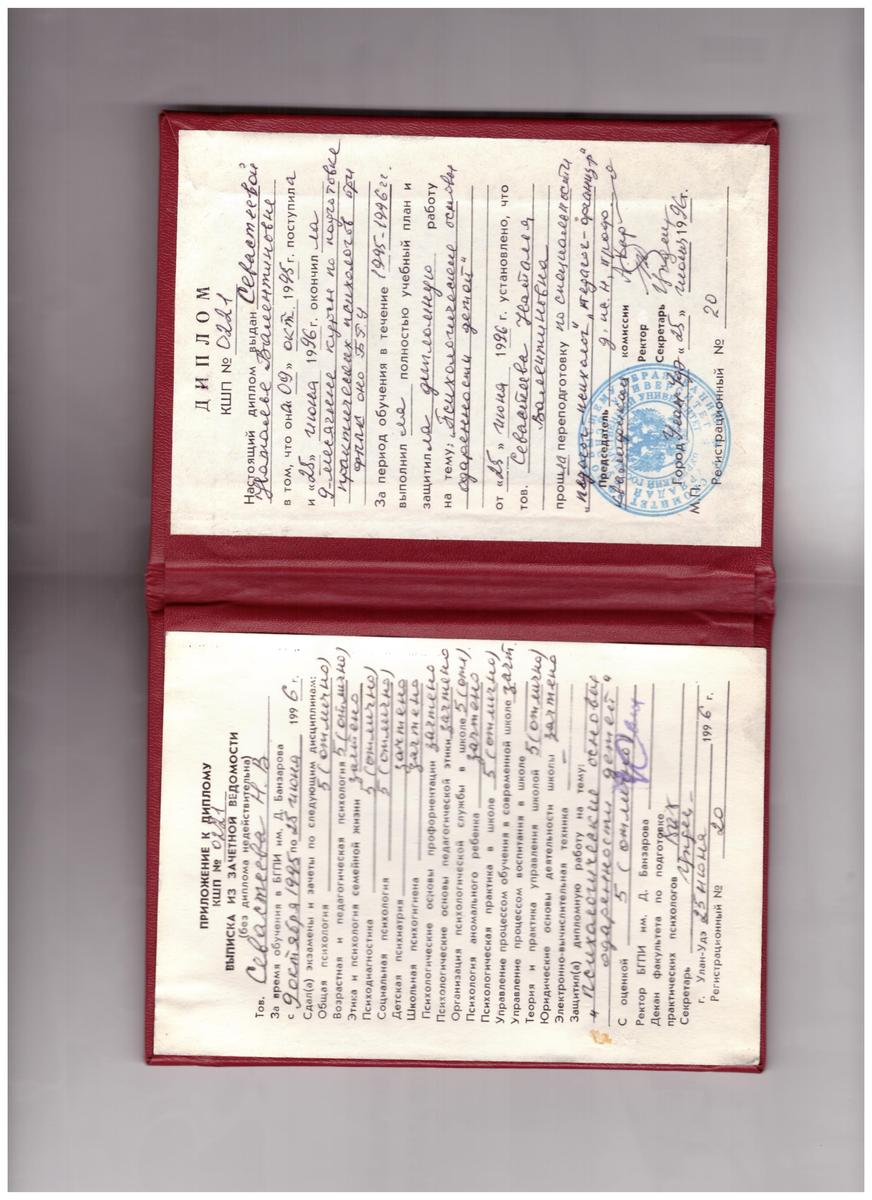 ПРИЛОЖЕНИЕ К ДИПЛОМУ
КШП № 0221
ВЫПИСКА ИЗ ЗАЧЕТНОЙ ВЕДОМОСТИ
(без диплома недействительна)
Тов. Севастеева Н.В
За время обучения в БГПИ им. Д. Банзарова
с 9 октября 1995 по 25 июня 1996 г.
Сдел(а) экзамены и зачеты по следующим дисциплинам:
Общая психология 5 (отлично)
Возрастная и педагогическая психология 5 (отлично)
Этика и психология семейной жизни зачтено
Психодиагностика 5 (отлично)
Социальная психология 5 (отлично)
Детская психиатрия зачтено
Школьная психогигиена зачтено
Психологические основы профориентации зачтено
Психологические основы педагогической этики зачтено
Организация психологической службы в школе 5 (отл).
Психология аномального ребенка зачтено
Психологическая практика в школе 5 (отлично)
Управление процессом обучения в современной школе зачт.
Управление процессом воспитания в школе
Теория и практика управления школой 5 (отлично)
Юридические основы деятельности школы зачтено
Электронно-вычислительная техника –
Защитил(а) дипломную работу на тему:
"Психологические основы
одаренности детей"
С оценкой 5 (отлично)
Ректор БГПИ им. Д. Банзарова
Декан факультета по подготовке
практических психологов
Секретарь
г. Улан-Удэ 25 июня 1996 г.
Регистрационный № 20
ДИПЛОМ
КШП № 0221
Настоящий диплом выдан Севастеевой
Наталье Валентиновне
в том, что она "09" окт. 1995 г. поступила
и «25» июня 1996 г. окончила
9-месячные курсы по подготовке
практических психологов при
БГУ
За период обучения в течение 1995-1996 гг.
выполнила полностью учебный план и
защитила дипломную работу
на тему: „Психологические основы
одаренности детей"
от «25» июня 1996 г. установлено, что
тов. Севастеева Наталья
Валентиновна
прошла переподготовку по специальности
"педагог-психолог",
Председатель
комиссии
Ректор
Секретарь
Город Улан-Удэ «25» июня 1996 г.
М.П.
Регистрационный № 20